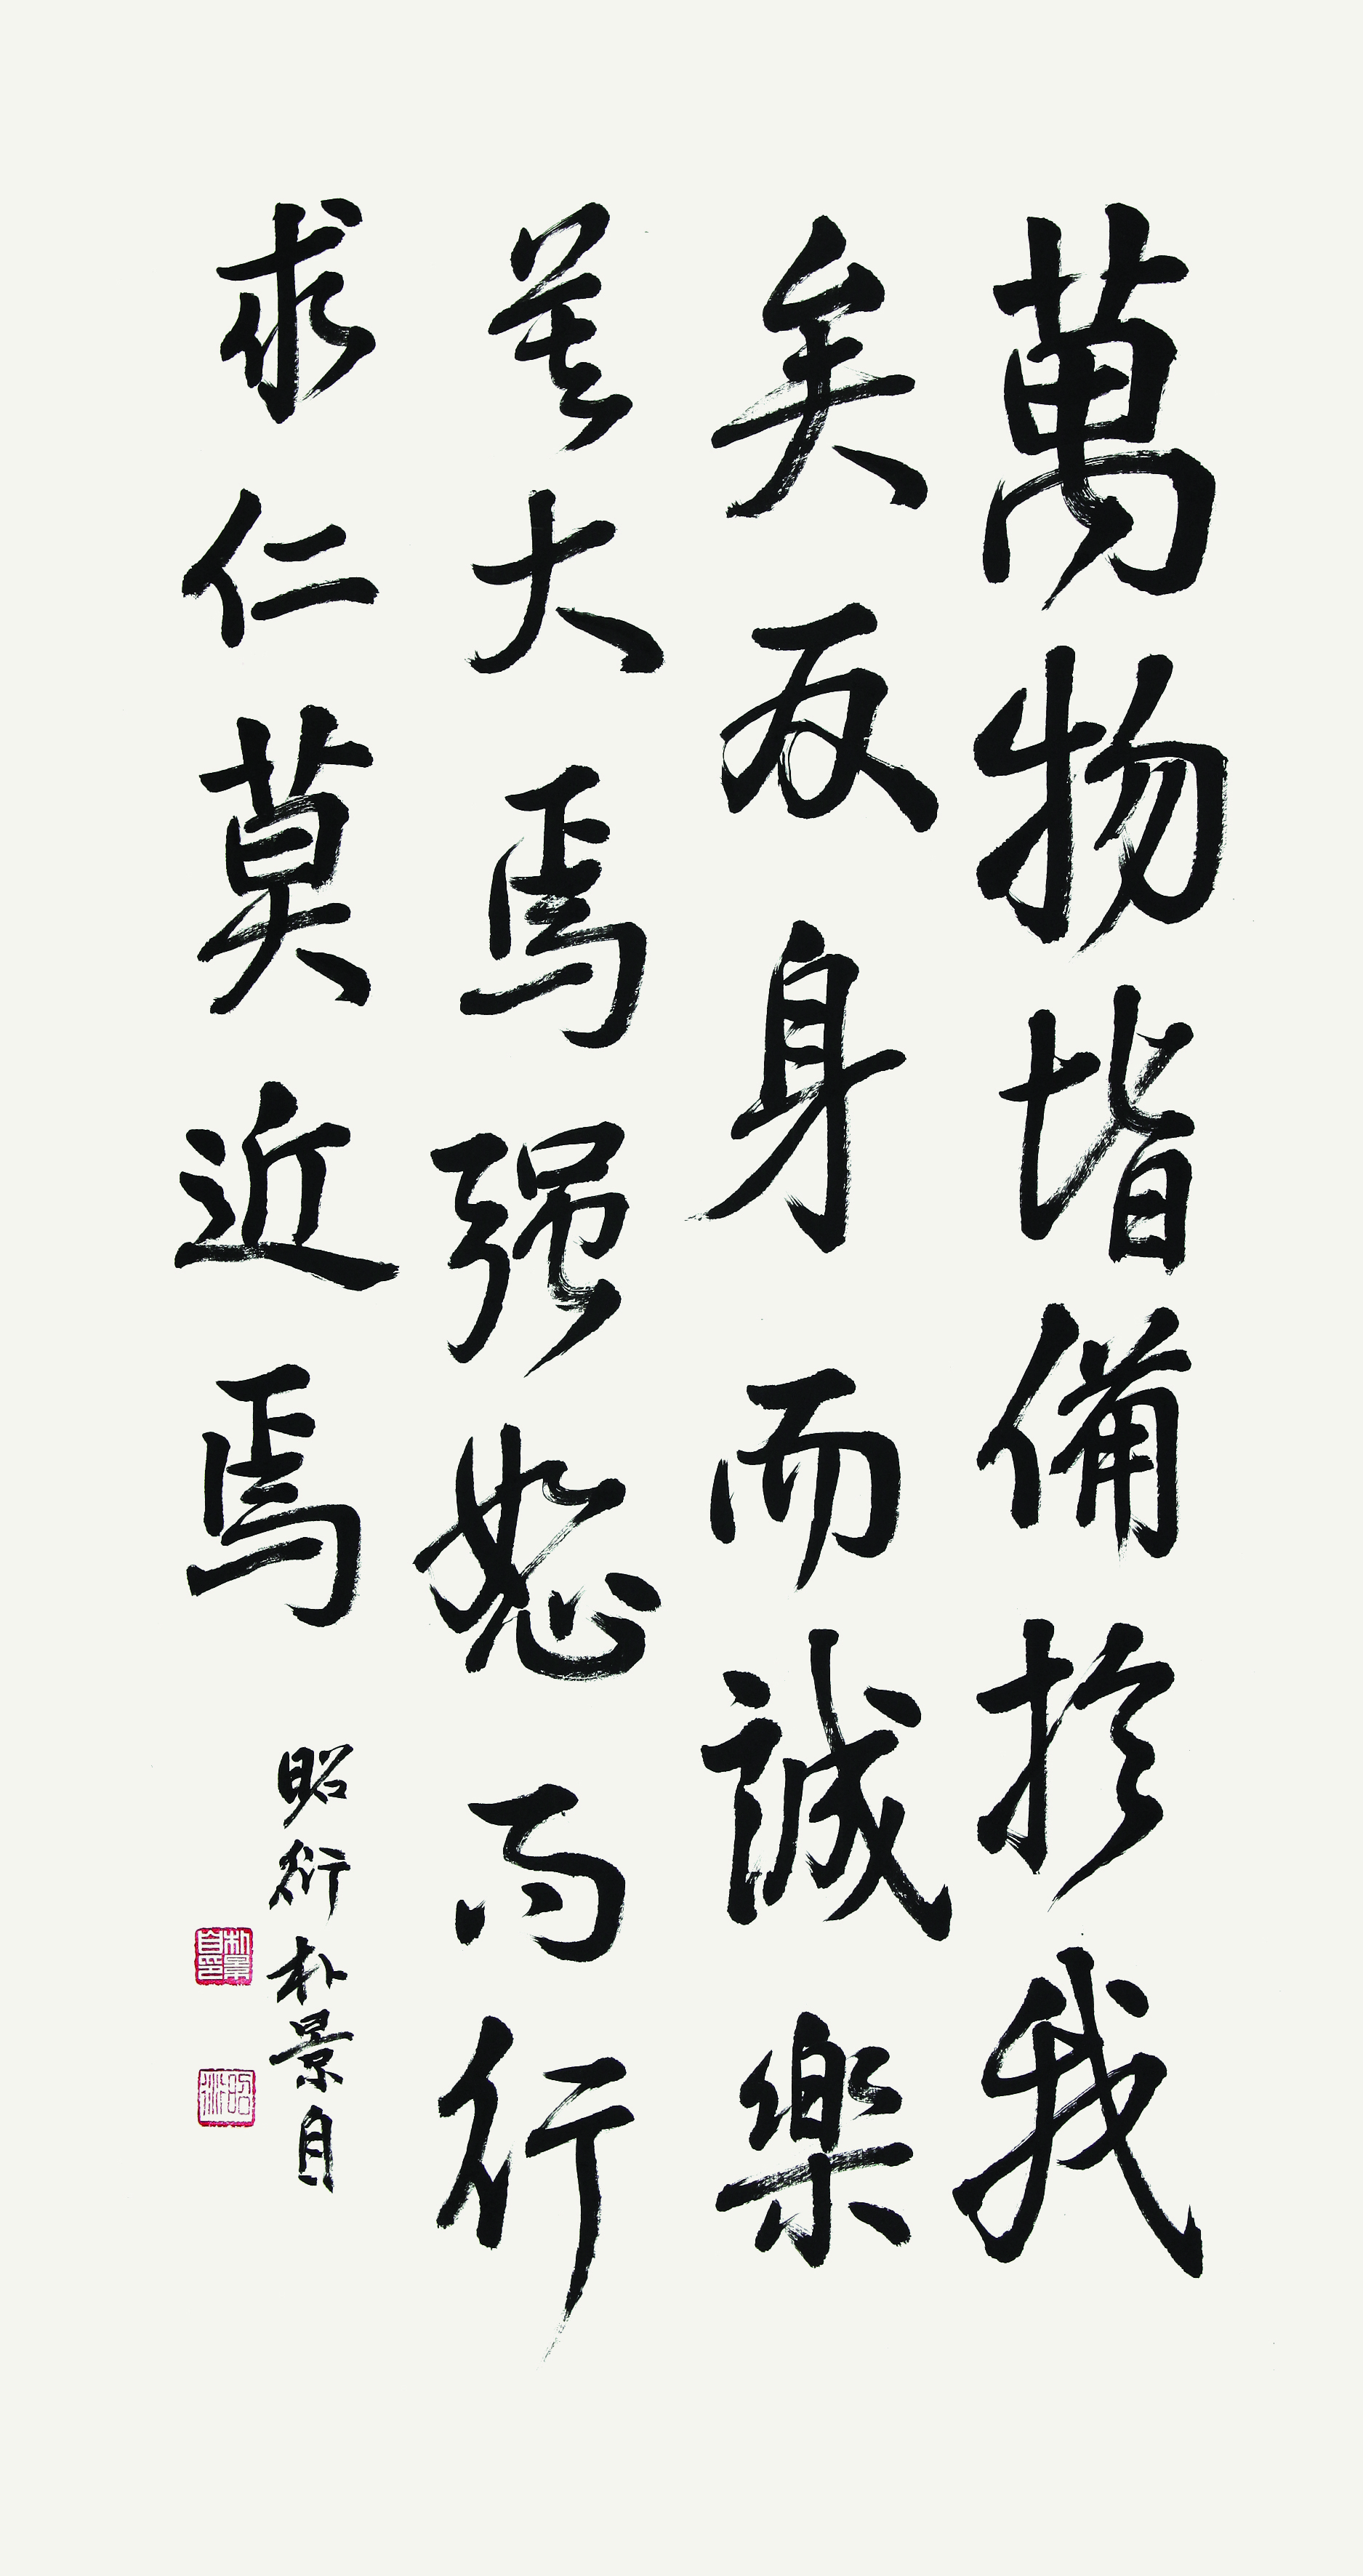 萬物皆備於我
矣反身而誠樂
莫大焉强恕而行
求仁莫近焉
昭衍朴景自
朴景自印
昭衍